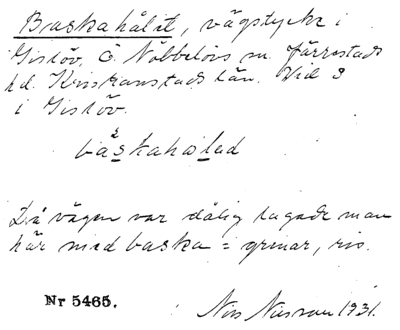 Baskahålet, vägstycke i
Gislöv, Ö. Nöbbelövs sn. Järrestads
hd. Kristianstads län. Vid 3
i Gislöv.
baskahola d
Då vägen var dålig lagade man
här med baska = grenar, ris.
Nr 5465.
Nils Nilsson 1931.